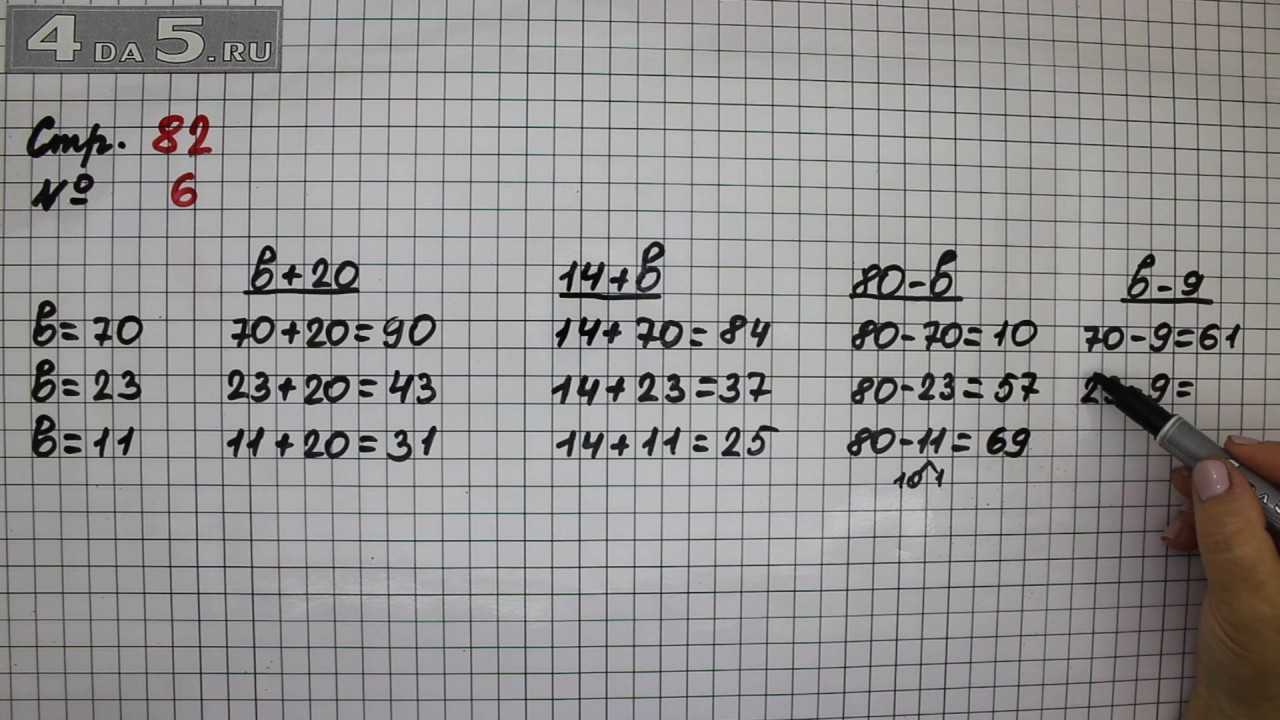 4DA5.RU
Стр. 82
№ 6
в+20 14+в 80-в в-9
в=70 70+20=90 14+70=84 80-70=10 70-9=61
в=23 23+20=43 14+23=37 80-23=57 -9=
в=11 11+20=31 14+11=25 80-11=69
10 1